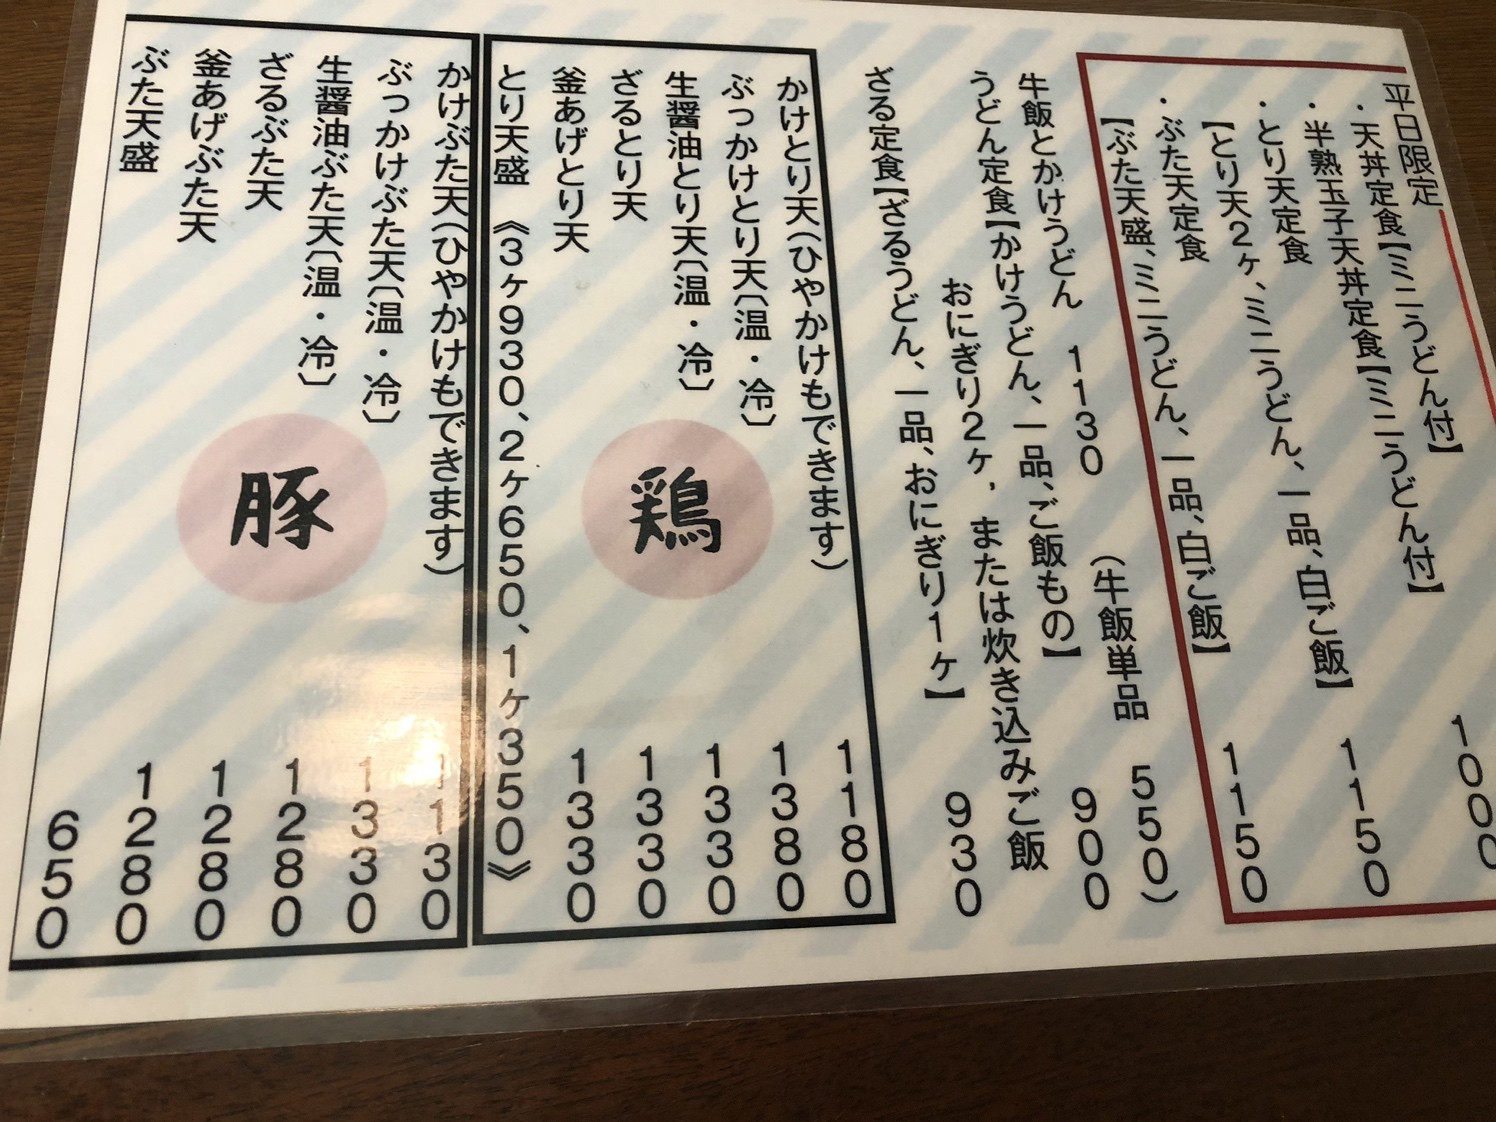 平日限定
・天丼定食【ミニうどん付】 1000
・半熟玉子天丼定食【ミニうどん付】 1150
・とり天定食
【とり天2ヶ、ミニうどん、一品、白ご飯】
・ぶた天定食 1150
【ぶた天盛、ミニうどん、一品、白ご飯】
牛飯とかけうどん 1130 (牛飯単品 550)
うどん定食【かけうどん、一品、ご飯もの】 900
おにぎり2ヶ, または炊き込みご飯
ざる定食【ざるうどん、一品、おにぎり1ヶ】 930
かけとり天(ひやかけもできます) 1180
ぶっかけとり天〔温・冷〕 1380
生醤油とり天〔温・冷〕 1330
ざるとり天 1330
釜あげとり天 1330
とり天盛 《3ヶ930、2ヶ650、1ヶ350》
鶏
かけぶた天(ひやかけもできます) 1130
ぶっかけぶた天〔温・冷〕 1330
生醤油ぶた天〔温・冷〕 1280
ざるぶた天 1280
釜あげぶた天 1280
ぶた天盛 650
豚